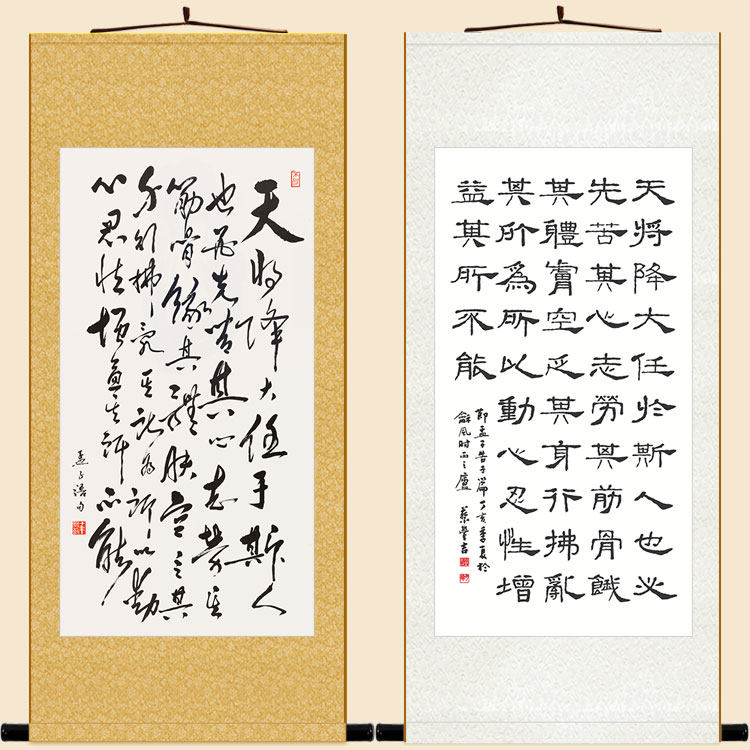 天将降大任于斯人
也必先苦其心志劳其
筋骨餓其體膚空乏其
身行拂乱其所为所以動
心忍性增益其所不能
孟子語句
天將降大任於斯人也必
先苦其心志勞其筋骨餓
其體膚空乏其身行拂亂
其所為所以動心忍性增
益其所不能
節孟子告子篇丁亥季夏於
龢風時雨之廬 蔡豐吉